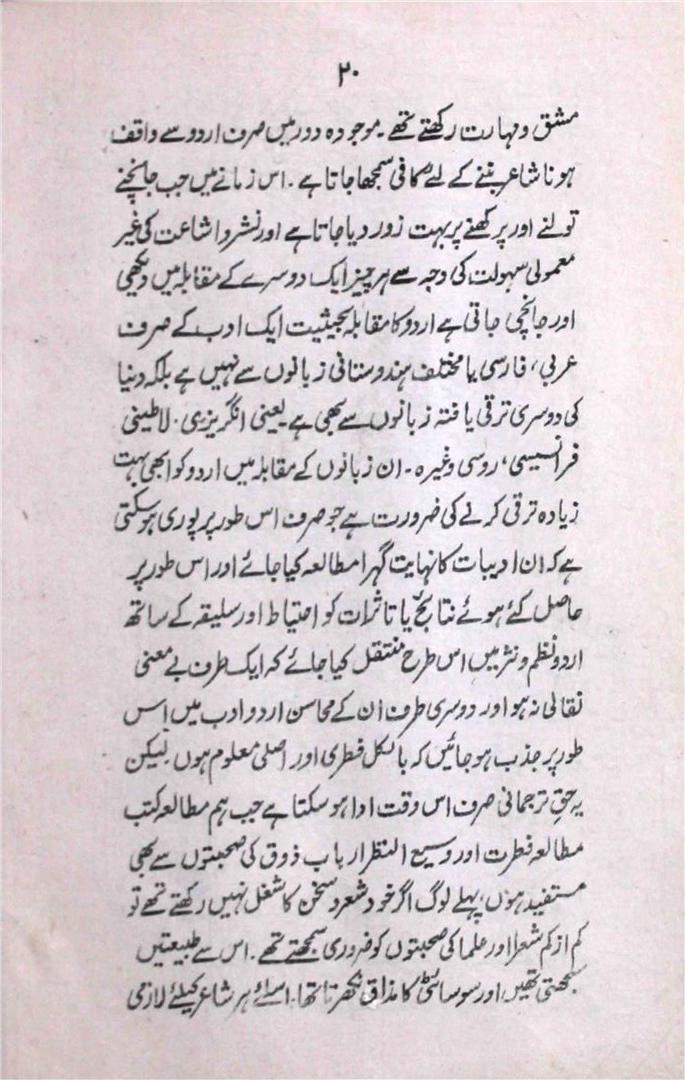 ۲۰
مشق و مہارت رکھتے تھے ۔ موجودہ دور میں صرف اردو سے واقف
ہونا شاعر بننے کے لئے کافی سمجھا جاتا ہے ۔ اس زمانے میں جب جانچنے
تولنے اور پرکھنے پر بہت زور دیا جاتا ہے اور نشر و اشاعت کی غیر
معمولی سہولت کی وجہ سے ہر چیز ایک دوسرے کے مقابلہ میں دیکھی
اور جانچی جاتی ہے اردو کا مقابلہ بحیثیت ایک ادب کے صرف
عربی، فارسی یا مختلف ہندوستانی زبانوں سے نہیں ہے بلکہ دنیا
کی دوسری ترقی یافتہ زبانوں سے بھی ہے یعنی انگریزی ۔ لاطینی
فرانسیسی، روسی وغیرہ ۔ ان زبانوں کے مقابلہ میں اردو کو ابھی بہت
زیادہ ترقی کرنے کی ضرورت ہے جو صرف اس طور پر پوری ہو سکتی
ہے کہ ان ادبیات کا نہایت گہرا مطالعہ کیا جائے اور اس طور پر
حاصل کئے ہوئے نتائج یا تاثرات کو احتیاط اور سلیقہ کے ساتھ
اردو نظم و نثر میں اس طرح منتقل کیا جائے کہ ایک طرف بے معنی
نقالی نہ ہو اور دوسری طرف ان کے محاسن اردو ادب میں اس
طور پر جذب ہو جائیں کہ بالکل فطری اور اصلی معلوم ہوں لیکن
یہ حق ترجمانی صرف اس وقت ادا ہو سکتا ہے جب ہم مطالعہ کتب
مطالعہ فطرت اور وسیع النظر ارباب ذوق کی صحبتوں سے بھی
مستفید ہوں، پہلے لوگ اگر خود شعر و سخن کا شغل نہیں رکھتے تھے تو
کم از کم شعرا اور علما کی صحبتوں کو ضروری سمجھتے تھے ۔ اس سے طبیعتیں
سلجھتی تھیں اور سوسائٹی کا مذاق نکھرتا تھا ۔ اسلئے ہر شاعر کیلئے لازمی